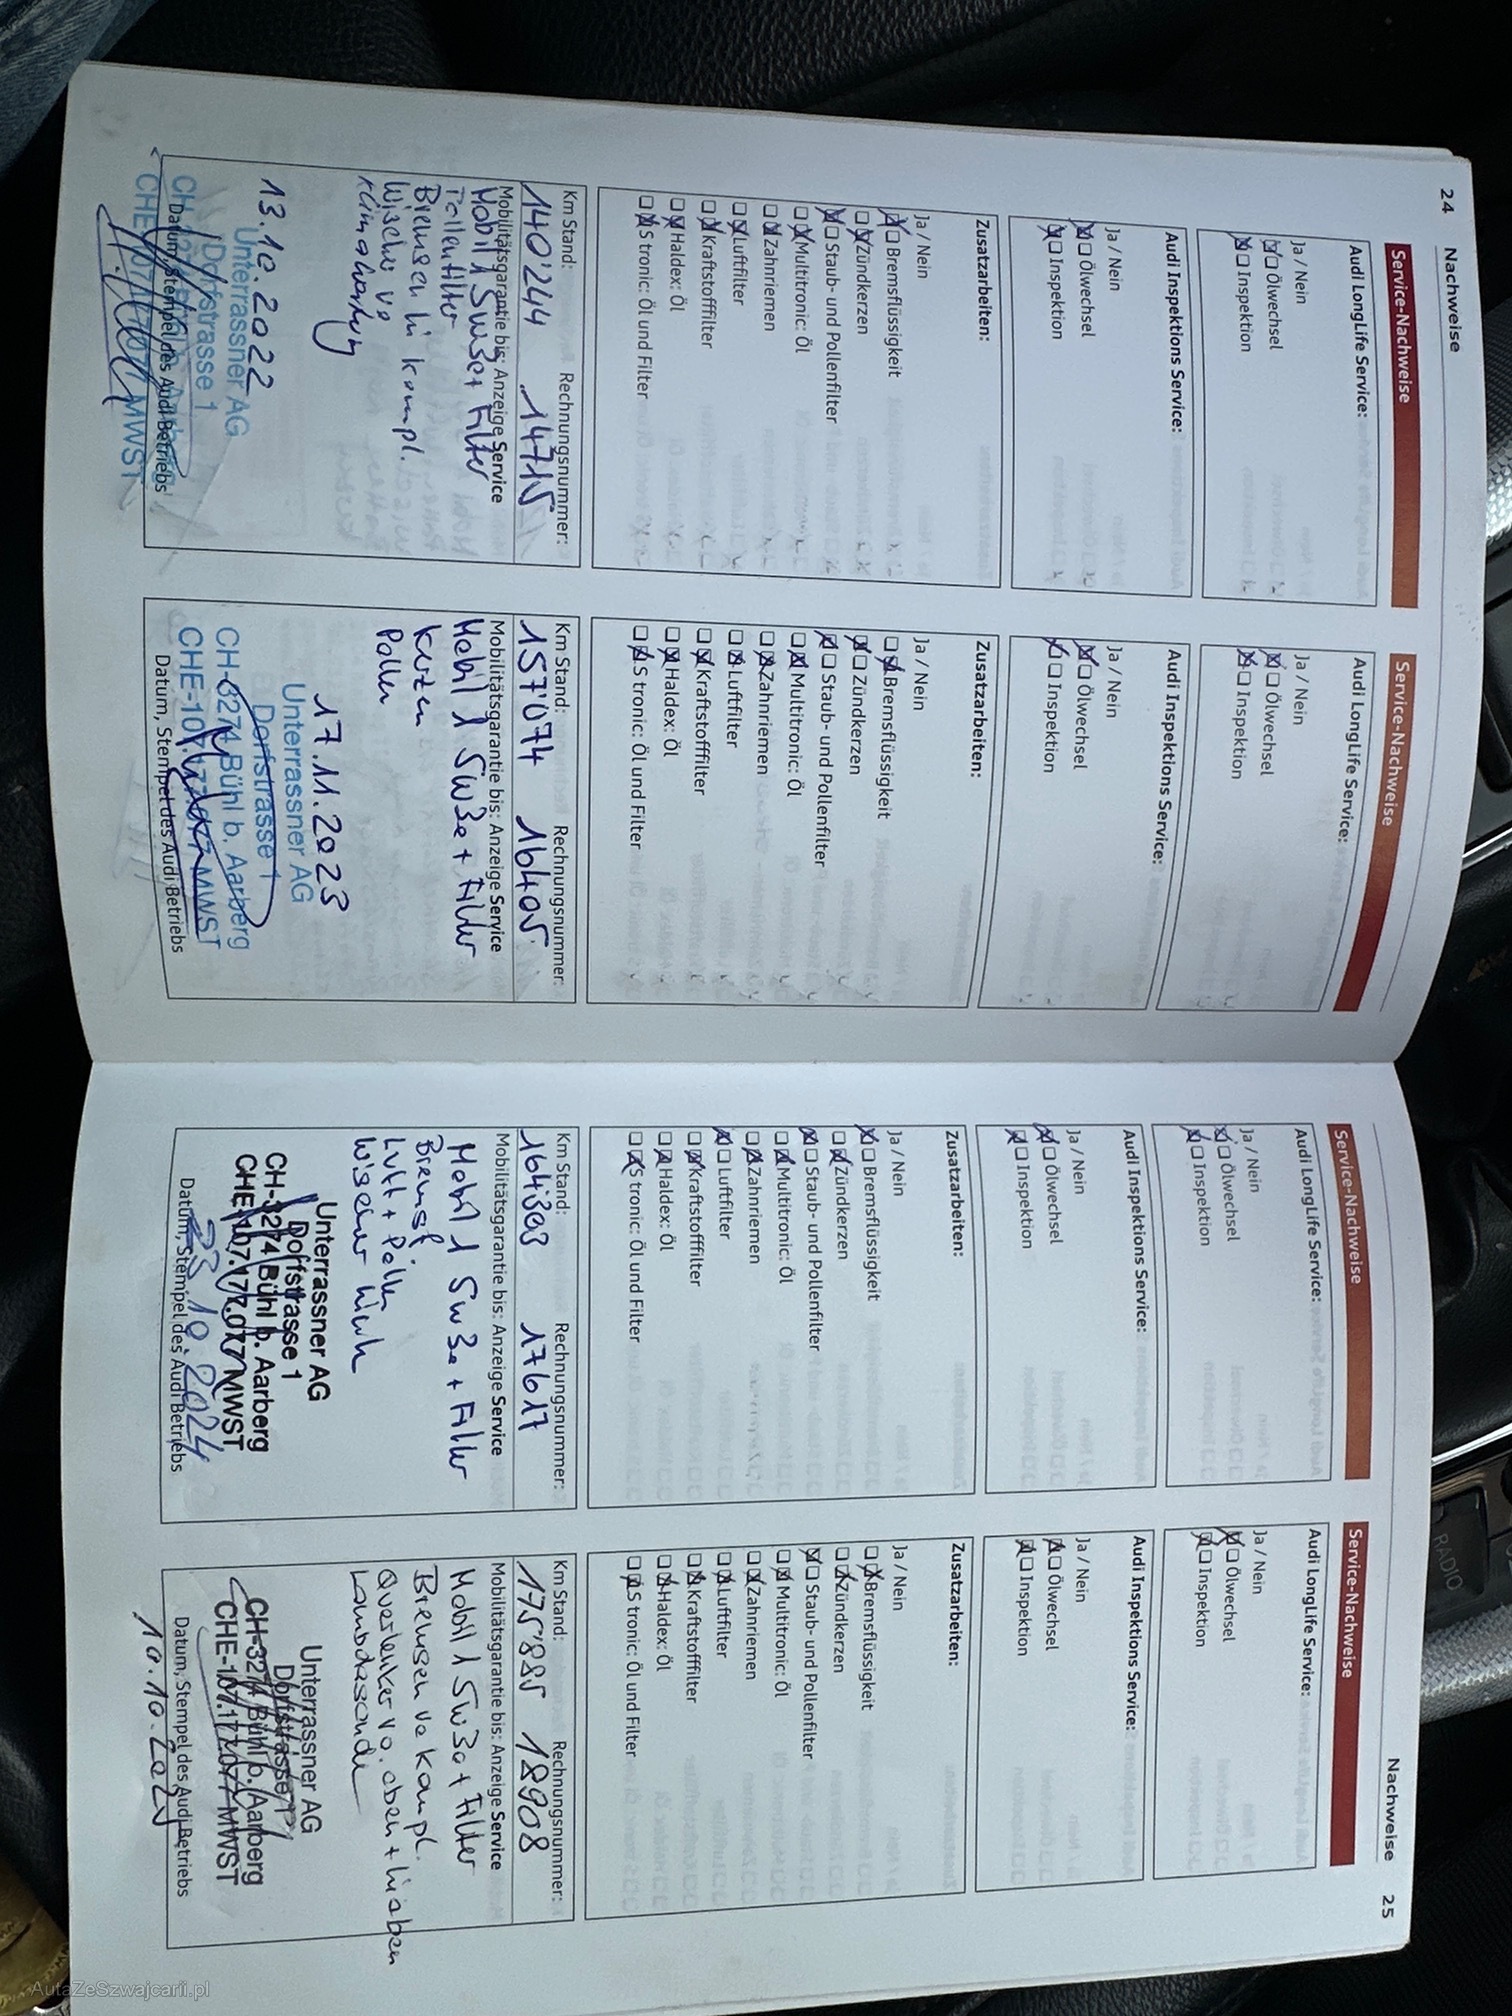 24 Nachweise
Service-Nachweise
Audi LongLife Service:
Ja / Nein
Ölwechsel
Inspektion
Audi Inspektions Service:
Ja / Nein
Ölwechsel
Inspektion
Zusatzarbeiten:
Ja / Nein
Bremsflüssigkeit
Zündkerzen
Staub- und Pollenfilter
Multitronic: Öl
Zahnriemen
Luftfilter
Kraftstofffilter
Haldex: Öl
S tronic: Öl und Filter
Km Stand: Rechnungsnummer:
140'244 14715
Mobilitätsgarantie bis: Anzeige Service
Mobil 1 5w30 + Filter
Pollenfilter
Bremsen hi kompl.
Wischer vo
13.10.2022
Unterrassner AG
Dorfstrasse 1
Datum, Stempel des Audi Betriebs
Service-Nachweise
Audi LongLife Service:
Ja / Nein
Ölwechsel
Inspektion
Audi Inspektions Service:
Ja / Nein
Ölwechsel
Inspektion
Zusatzarbeiten:
Ja / Nein
Bremsflüssigkeit
Zündkerzen
Staub- und Pollenfilter
Multitronic: Öl
Zahnriemen
Luftfilter
Kraftstofffilter
Haldex: Öl
S tronic: Öl und Filter
Km Stand: Rechnungsnummer:
157'074 16405
Mobilitätsgarantie bis: Anzeige Service
Mobil 1 5w30 + Filter
Kerzen
Pollen
17.11.2023
Unterrassner AG
Dorfstrasse 1
CH-3274 Bühl b. Aarberg
CHE-107.177.077 MWST
Datum, Stempel des Audi Betriebs
Nachweise 25
Service-Nachweise
Audi LongLife Service:
Ja / Nein
Ölwechsel
Inspektion
Audi Inspektions Service:
Ja / Nein
Ölwechsel
Inspektion
Zusatzarbeiten:
Ja / Nein
Bremsflüssigkeit
Zündkerzen
Staub- und Pollenfilter
Multitronic: Öl
Zahnriemen
Luftfilter
Kraftstofffilter
Haldex: Öl
S tronic: Öl und Filter
Km Stand: Rechnungsnummer:
164'303 17617
Mobilitätsgarantie bis: Anzeige Service
Mobil 1 5w30 + Filter
Bremsfl.
Luft + Pollen
Wischer
Unterrassner AG
Dorfstrasse 1
CH-3274 Bühl b. Aarberg
CHE-107.177.077 MWST
23.10.2024
Datum, Stempel des Audi Betriebs
Service-Nachweise
Audi LongLife Service:
Ja / Nein
Ölwechsel
Inspektion
Audi Inspektions Service:
Ja / Nein
Ölwechsel
Inspektion
Zusatzarbeiten:
Ja / Nein
Bremsflüssigkeit
Zündkerzen
Staub- und Pollenfilter
Multitronic: Öl
Zahnriemen
Luftfilter
Kraftstofffilter
Haldex: Öl
S tronic: Öl und Filter
Km Stand: Rechnungsnummer:
175'885 18908
Mobilitätsgarantie bis: Anzeige Service
Mobil 1 5w30 + Filter
Bremsen vo kompl.
Querlenker vo. oben + hi oben
Lambdasonde
Unterrassner AG
Dorfstrasse 1
CH-3274 Bühl b. Aarberg
CHE-107.177.077 MWST
Datum, Stempel des Audi Betriebs
10.10.2025
RADIO
AutaZeSzwajcarii.pl